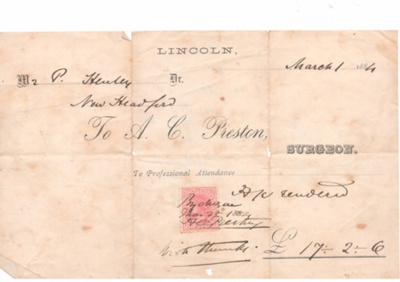 LINCOLN,
March 1 184
Mr P. Henley Dr.
New Headford
To A. C. Preston,
SURGEON.
To Professional Attendance
A/c rendered
By cheque
A C Preston
With thanks. £ 17-2-6